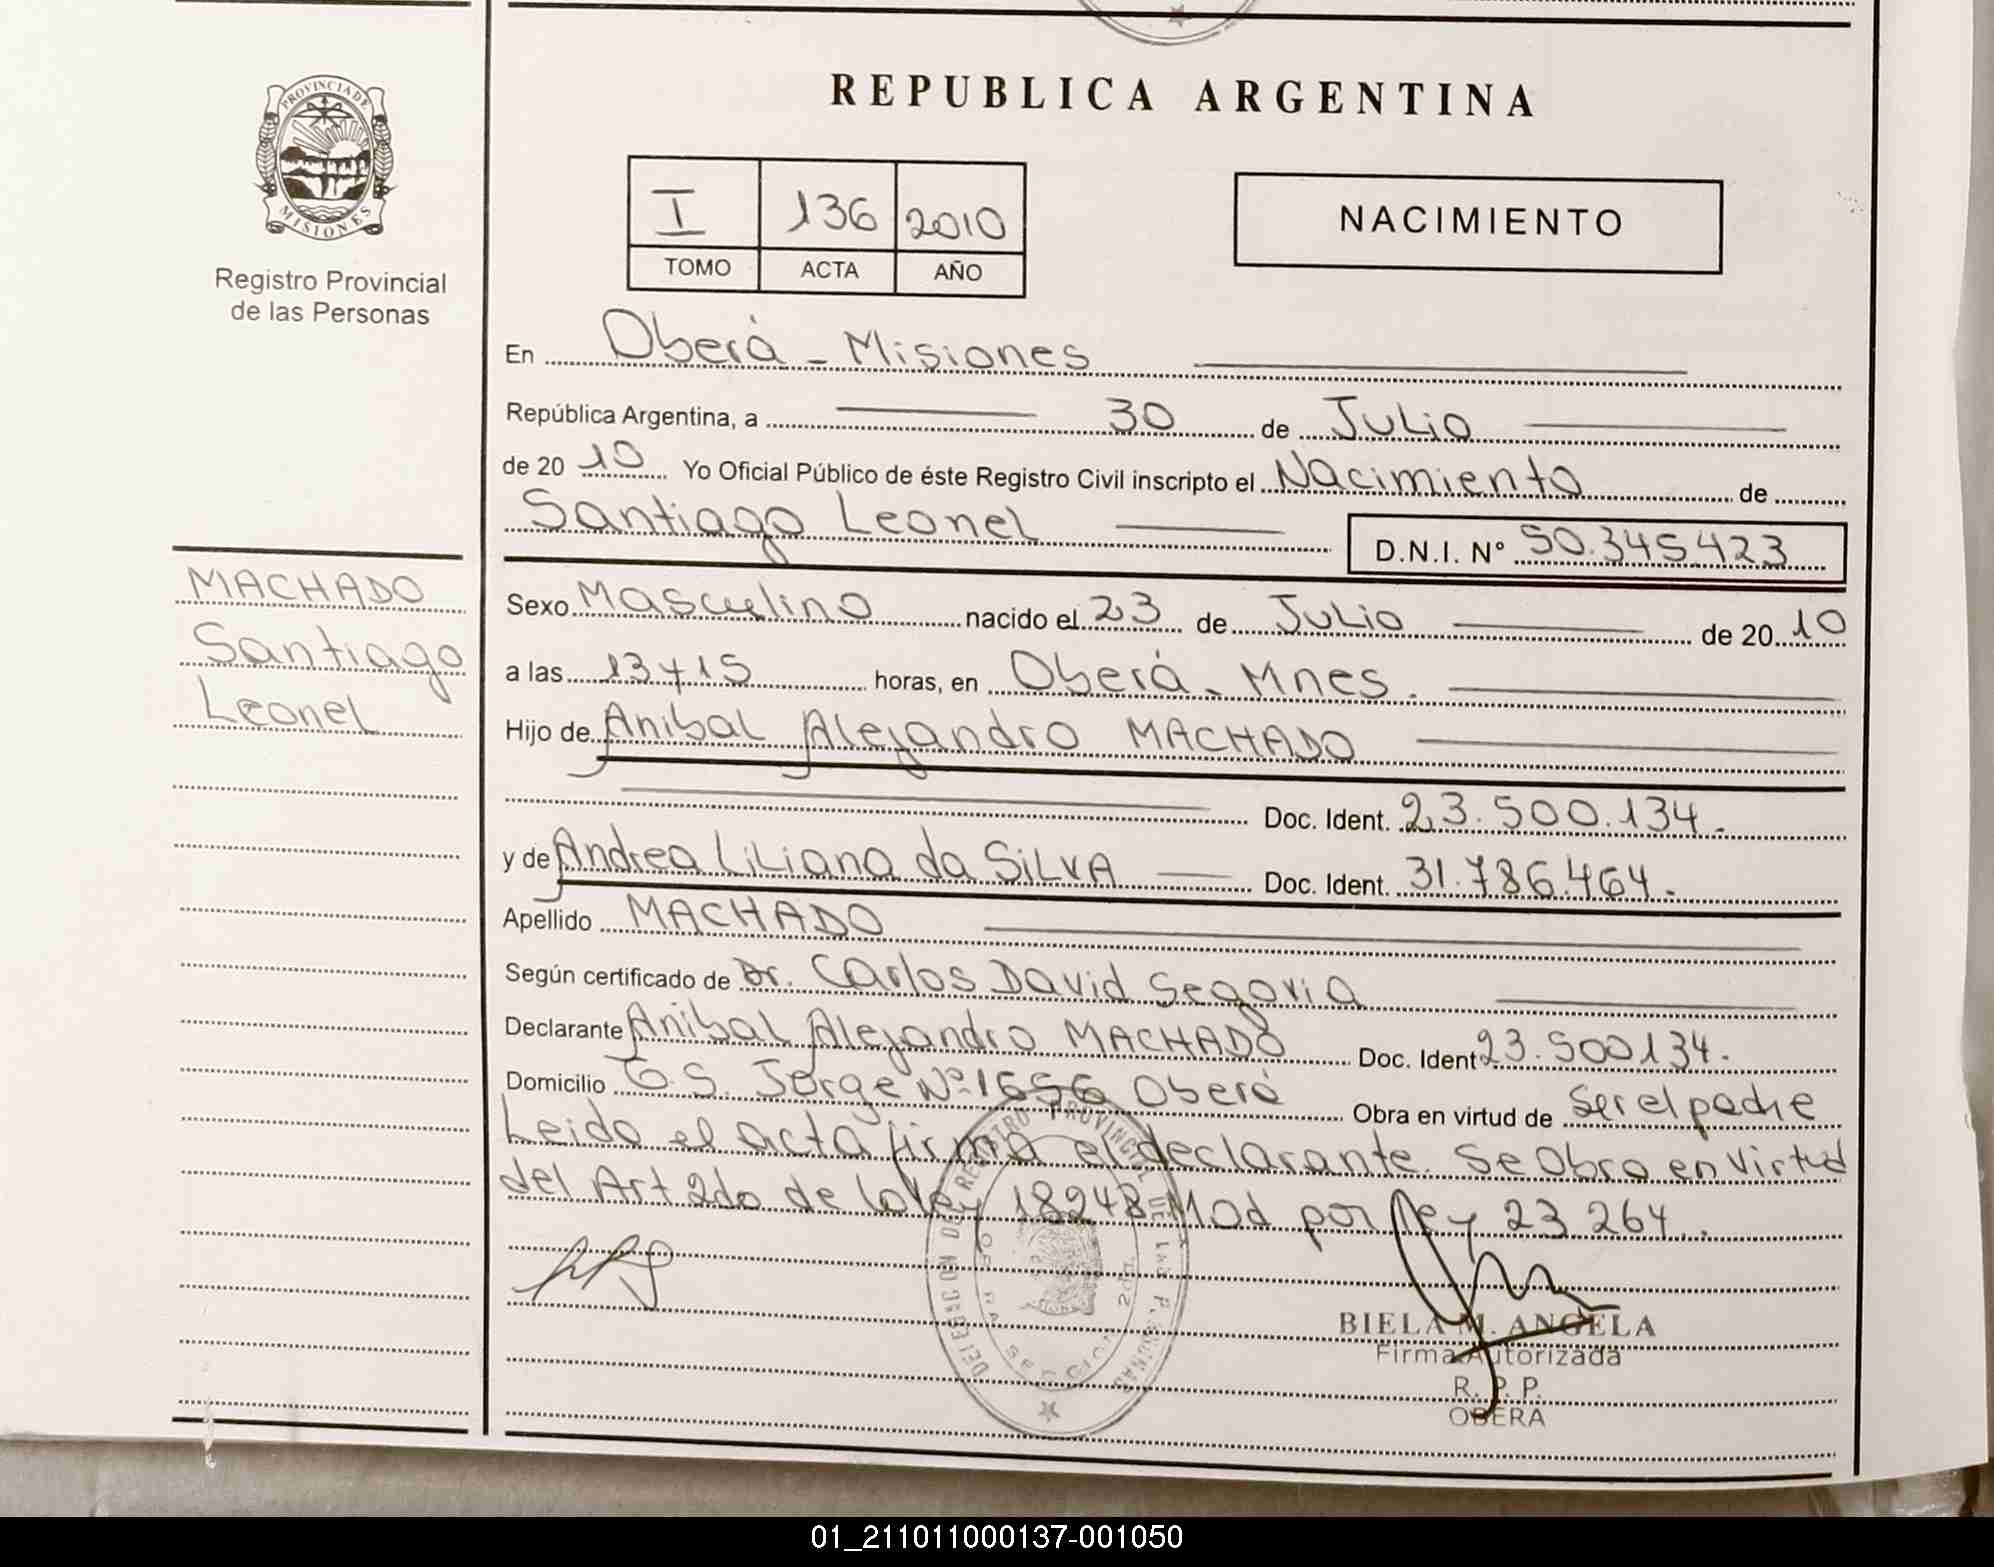 PROVINCIA DE
MISIONES
Registro Provincial
de las Personas
MACHADO
Santiago
Leonel
REPUBLICA ARGENTINA
I 136 2010
TOMO ACTA AÑO
NACIMIENTO
En Oberá - Misiones
República Argentina, a 30 de Julio
de 20 10 Yo Oficial Público de éste Registro Civil inscripto el Nacimiento de
Santiago Leonel D.N.I. N° 50.345.423
Sexo Masculino nacido el 23 de Julio de 20 10
a las 13 y 15 horas, en Oberá - Mnes.
Hijo de Anibal Alejandro MACHADO
Doc. Ident. 23.500.134.
y de Andrea Liliana da SILVA Doc. Ident. 31.786.464.
Apellido MACHADO
Según certificado de Dr. Carlos David Segovia
Declarante Anibal Alejandro MACHADO Doc. Ident 23.500134.
Domicilio G.S. Jorge Nº 1656 Oberá Obra en virtud de Ser el padre
Leido el acta firma el declarante. Se Obra en Virtud
del Art 2do de la Ley 18248 Mod por Ley 23 264.
BIELA M. ANGELA
Firma Autorizada
R. P. P.
OBERA
01_211011000137-001050